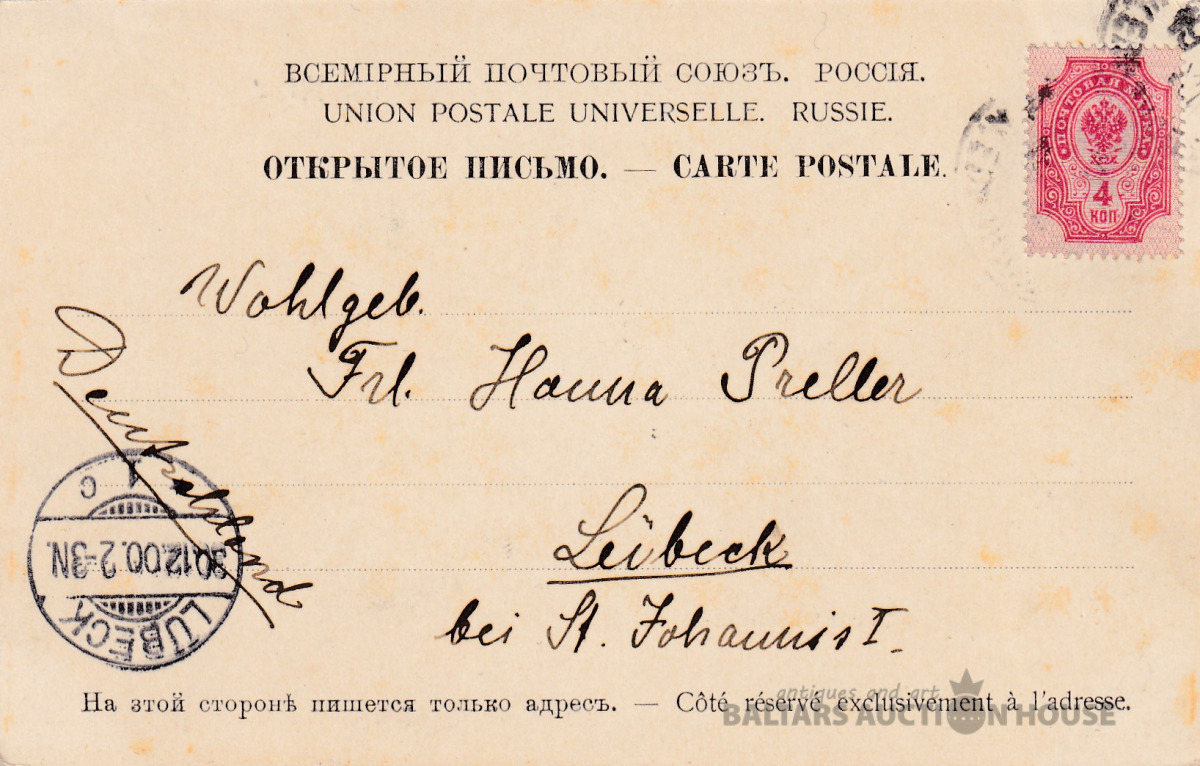 ВСЕМІРНЫЙ ПОЧТОВЫЙ СОЮЗЪ. РОССІЯ.
UNION POSTALE UNIVERSELLE. RUSSIE.
ОТКРЫТОЕ ПИСЬМО. — CARTE POSTALE.
ПОЧТОВАЯ МАРКА
4
КОП.
Wohlgeb.
Frl. Hanna Preller
Deutschland
Lübeck
bei St. Johannis I
1 C
30.12.00.2-3N.
LÜBECK
На этой сторонѣ пишется только адресъ. — Côté réservé exclusivement à l'adresse.
antiques and art
BALTARS AUCTION HOUSE